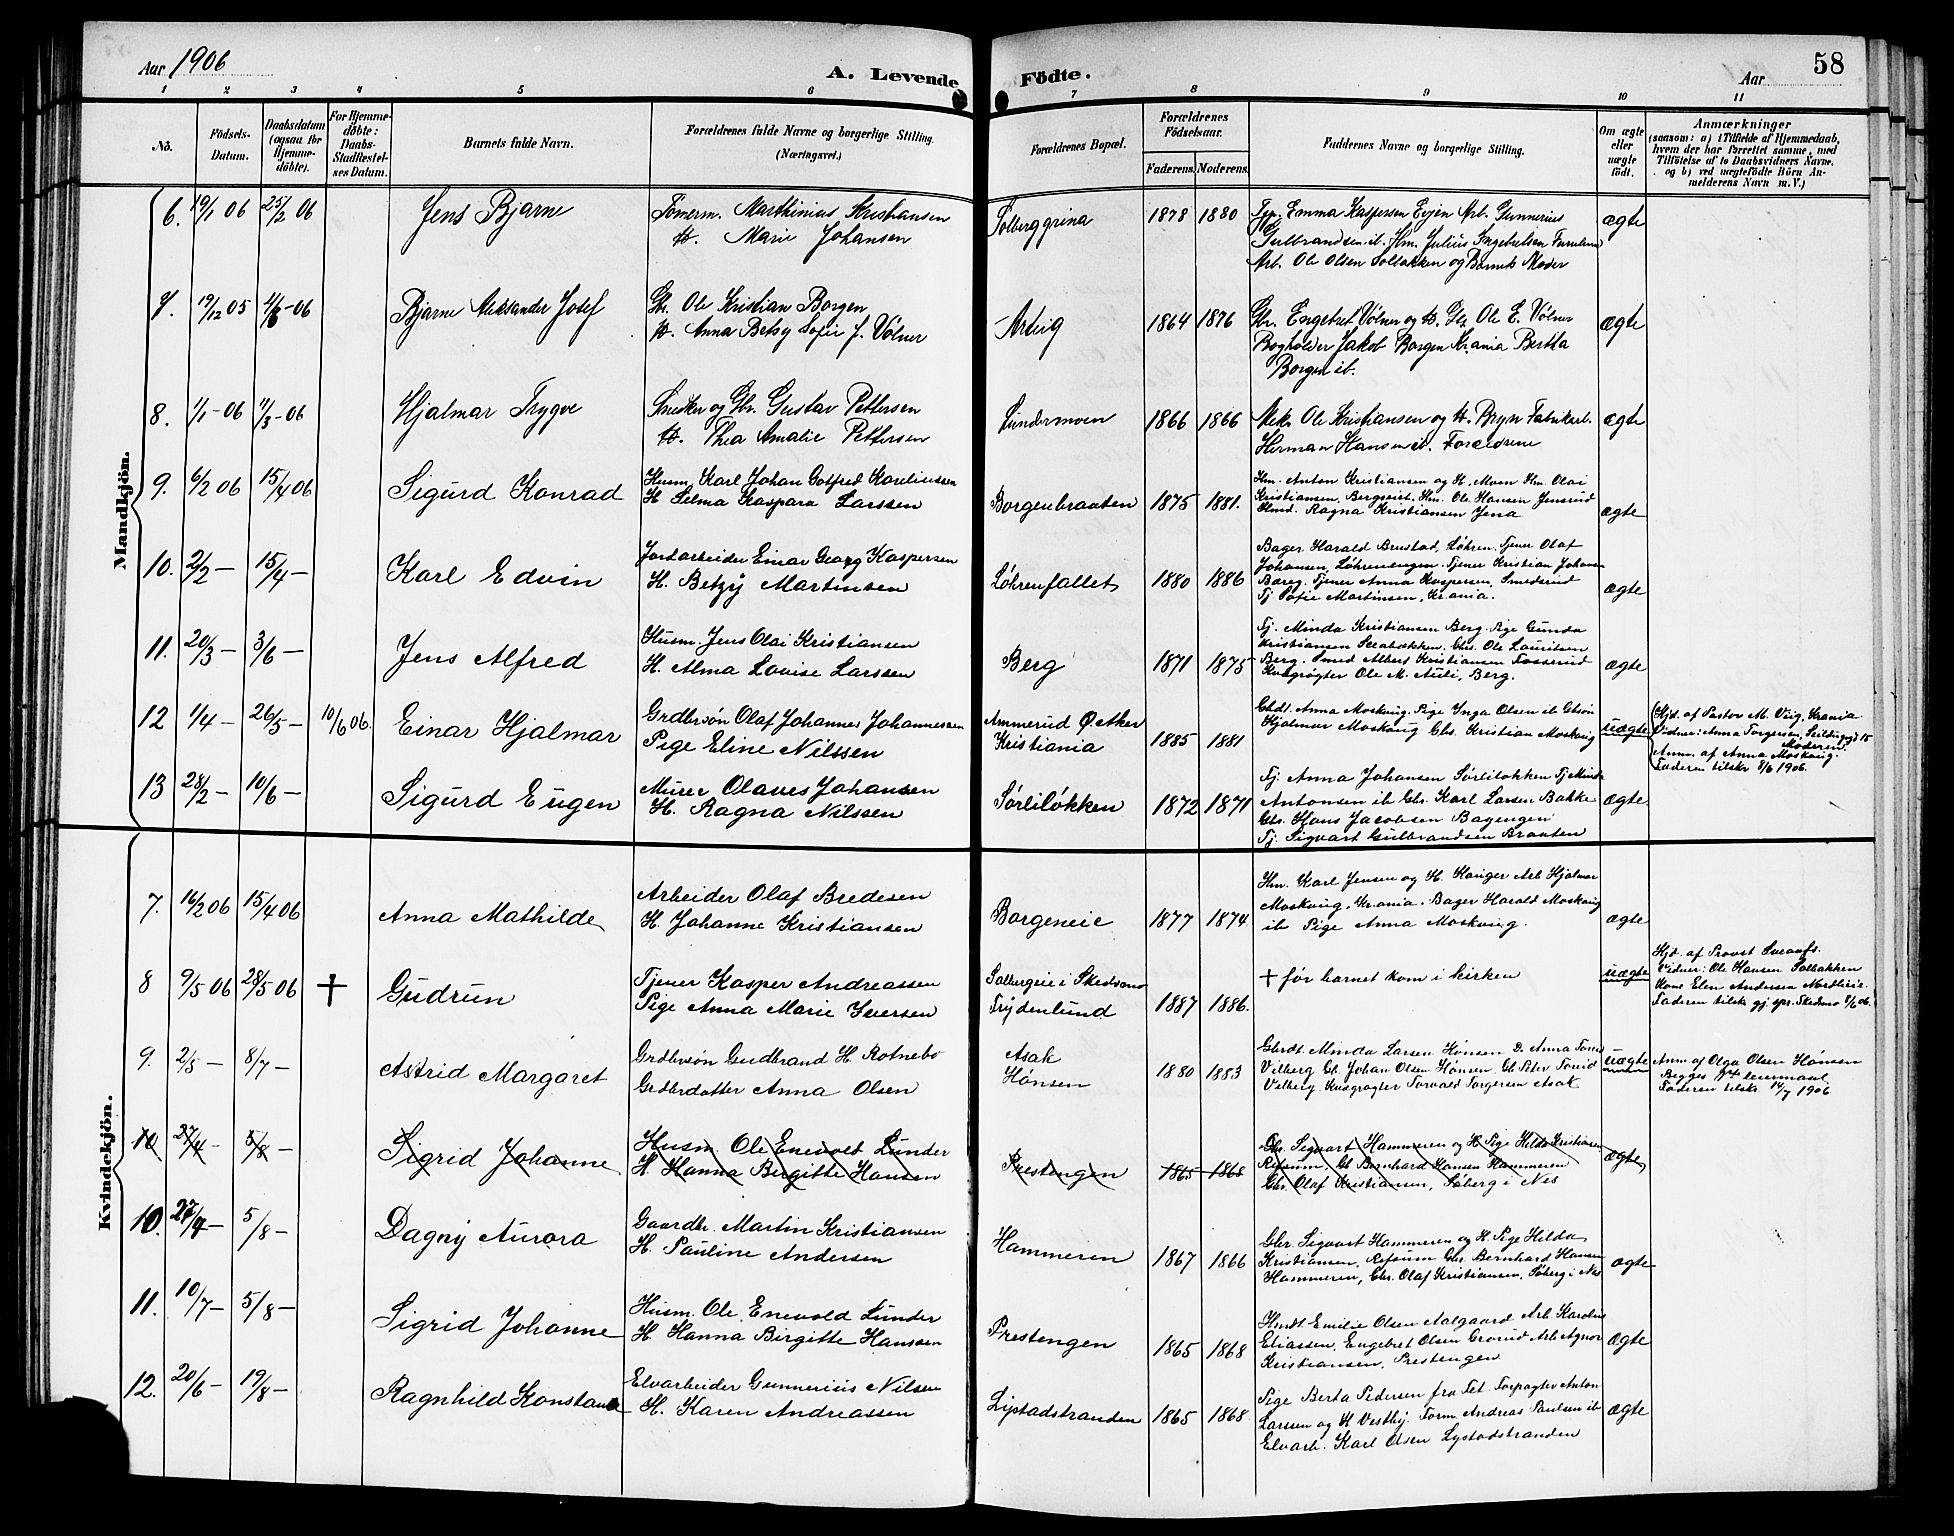 Aar 1906
A. Levende
Födte.
Aar
58
1 2 3 4 5 6 7 8 9 10 11
No.
Födsels-
Datum.
Daabsdatum
(ogsaa for
Hjemme-
döbte).
For Hjemme-
döbte:
Daabs-
Stadfæstel-
ses Datum.
Barnets fulde Navn.
Forældrenes fulde Navne og borgerlige Stilling.
(Næringsvei.)
Forældrenes Bopæl.
Forældrenes
Födselsaar.
Faderens.
Moderens.
Faddernes Navne og borgerlige Stilling.
Om ægte
eller
uægte
födt.
Anmærkninger
(saasom: a) i Tilfælde af Hjemmedaab,
hvem der har forrettet samme, med
Tilföielse af to Daabsvidners Navne.
og b) ved uægtefödte Börn An-
melderens Navn m. V.)
Mandkjön.
6. 19/1 06 25/2 06 Jens Bjarne
Tömerm. Marthinius Kristiansen
H. Marie Johansen
Solberggrina 1878 1880
Emma Kaspersen Evjen Arb. Gunnerius
Gulbrandsen ib. Hm. Julius Ingebretsen
Arb. Ole Olsen Solbakken og Barnets Moder
ægte
7. 19/12 05 4/3 - 06 Bjarne Aleksander Josef
Gbr. Ole Kristian Borgen
H. Anna Betsy Sofie J. Völner
1864 1876
Gbr. Engebret Völner og H. Gbr. Ole E. Völner
Bogholder Jakob Borgen Kr.ania Bertha
Borgen ib.
ægte
8. 1/1 - 06 11/3 - 06 Hjalmar Trygve
Snedker og Gbr. Gustav Pettersen
H. Thea Amalie Pettersen
Lundermoen 1866 1866
Ole Kristiansen og H. Bryn Fabrikarb.
Herman Hansen ib. Forældrene
ægte
9. 6/2 06 15/4 06 Sigurd Konrad
Husm. Karl Johan Gotfred Kareliussen
H. Selma Kaspara Larssen
Borgenbraaten 1875 1881.
Hm. Anton Kristiansen og H. Moen Hm. Olai
Kristiansen, Bergkvist. Hm. Ole Hansen Jensrud
Ragna Kristiansen Jena
ægte
10. 2/2 - 15/4 - Karl Edvin
Jordarbeider Einar Georg Kaspersen
H. Betzy Martinsen
Löhrenfallet 1880 1886
Bager Harald Brustad, Löhren. Tjener Olaf
Johansen, Löhrenengen. Tjener Kristian Johansen
Tjener Anna Kaspersen, Smedsrud
Tj Sofie Martinsen, Kr.ania.
ægte
11. 20/3 - 3/6 - Jens Alfred
Husm. Jens Olai Kristiansen
H. Alma Lovise Larssen
Berg 1871 1875
Tj. Minda Kristiansen Berg. Pige Gunda
Kristiansen Gbr. Ole Lauritsen
Berg. Smed Albert Kristiansen Fosserud
Kvægrøgter Ole M. Auli, Berg.
ægte
12 1/4 - 26/5 - 10/6 06. Einar Hjalmar
Grdbrsön Olaf Johannes Johannessen
Pige Eline Nilssen
Ammerud Ö. Aker
Kristiania 1885 1881
Gbdt. Anna Moskaug. Pige Inga Olsen ib Gbsön
Hjalmar Moskaug Gbr. Kristian Moskaug
uægte
Hjd. af Pastor M. Vig, Kr.ania
Vidner: Anna Torgersen, 15
Moderen.
Anm. af Anna Moskaug.
Faderen tilskr 8/6 1906.
13 28/2 - 10/6 - Sigurd Eugen
Murer Olaves Johansen
H. Ragna Nilssen
Sörliløkken 1872 1871
Tj. Anna Johansen Sörliløkken Tj Minda
Antonsen ib Gbr. Karl Larsen Bakke
Gbr. Hans Jacobsen Bagengen
Tj. Sigvart Gulbrandsen Braaten
ægte
Kvindekjön.
7. 16/2 06 15/4 06 Anna Mathilde
Arbeider Olaf Bredesen
H. Johanne Kristiansen
Borgeneie 1877 1874.
Hm. Karl Jensen og H. Hauger Arb Hjalmar
Moskaug, Kr.ania. Bager Harald Moskaug
ib Pige Anna Moskaug.
ægte
8 9/5 06 28/5 06 † Gudrun
Tjener Kasper Andreassen
Pige Anna Marie Iversen
Solbergeie i Skedsmo
Frydenlund 1887 1886.
† før barnet kom i kirken
uægte
Hjd. af Provst
Vidner: Ole Hansen Solbakken
Kone Elen Andersen
Faderen tilskr gj spr. Skedsmo 8/6 06.
9. 2/5 - 8/7 - Astrid Margaret
Grdbrsön Gudbrand H. Rotnebo
Grdbrdatter Anna Olsen
Asak
Hönsen 1880 1883
Gbrdt. Minda Larsen Hönsen D. Anna Torid
Vilberg Gb. Johan Olsen Hönsen Gb Peter Torid
Vilberg. Kvægrøgter Torvald Torgersen Asak
uægte
Anm. af Olga Olsen Hönsen
Begges 1st leiermaal
Faderen tilskr. 14/7 1906
10 27/4 - 5/8 - Sigrid Johanne
Husm. Ole Enevolt Lunder
H. Hanna Birgitte Hansen
Prestengen 1865 1868
Gbr. Sigvart Hammeren og H. Pige Hilda Kristiansen
Refsum, Gb Bernhard Hansen Hammeren
Gbr. Olaf Kristiansen, Søberg i Nes
ægte
10. 27/4 - 5/8 - Dagny Aurora
Gaardbr. Martin Kristiansen
H. Pauline Andersen
Hammeren 1867 1866
Gbr. Sigvart Hammeren og H. Pige Hilda
Kristiansen, Refsum Gbr. Bernhard Hansen
Hammeren, Gbr. Olaf Kristiansen, Søberg i Nes
ægte
11. 10/7 - 5/8 - Sigrid Johanne
Husm. Ole Enevold Lunder
H. Hanna Birgitte Hanssen
Prestengen 1865 1868
Hmdt. Emilie Olsen Aalgaard Arb. Karolius
Eliassen, Engebret Olsen Grorud Arb. Agnor
Kristiansen, Prestengen
ægte
12. 20/6 - 19/8 - Ragnhild Konstanse
Elvarbeider Gunnerius Nilsen
H. Karen Andreassen
Lystadstranden 1865 1868
Pige Berta Pedersen fra Fet. Forpagter Anton
Larsen og H Vestby. Form. Andreas Paulsen ib
Elvarb. Karl Olsen Lystadstranden
ægte